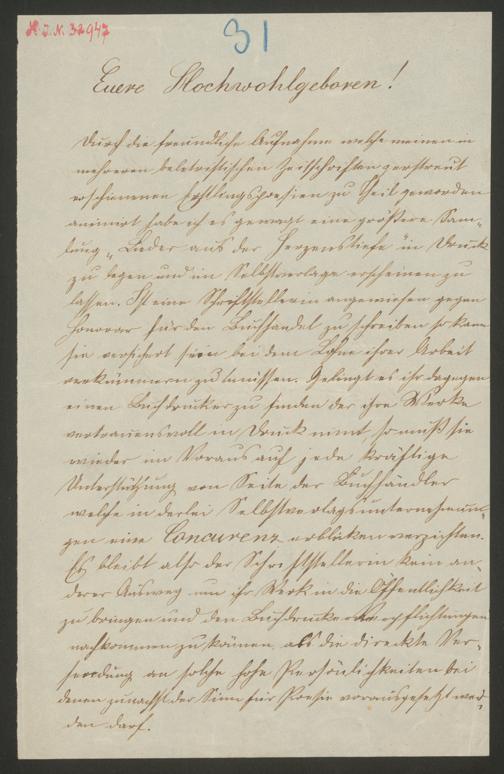 H.I.N. 32947
31
Euere Hochwohlgeboren!
Durch die freundliche Aufnahme welche meinen in
mehreren beletristischen Zeitschriften zerstreut
erschienenen Erstlingspoesien zu Theil geworden
animirt habe ich es gewagt eine größere Sam-
lung „Lieder aus der Herzenstiefe" in Druck
zu legen und im Selbstverlage erscheinen zu
lassen. Ist eine Schriftstellerin angewiesen gegen
Honorar für den Buchhandel zu schreiben so kann
sie versichert sein bei dem Lohne ihrer Arbeit
verkümmern zu müssen. Gelingt es ihr dagegen
einen Buchdrucker zu finden der ihre Werke
vertrauensvoll in Druck nimt, so muß sie
wieder im Voraus auf jede kräftige
Unterstützung von Seite der Buchhändler
welche in derlei Selbstverlagsunternehmun-
gen eine Concurenz erblicken verzichten.
Es bleibt also der Schriftstellerin kein an-
derer Ausweg um ihr Werk in die Öffentlichkeit
zu bringen und den Buchdrucker Verpflichtungen
nachkommen zu können, als die direckte Ver-
sendung an solche hohe Persönlichkeiten bei
denen zunächst der Sinn für Poesie vorausgesetzt wer-
den darf.